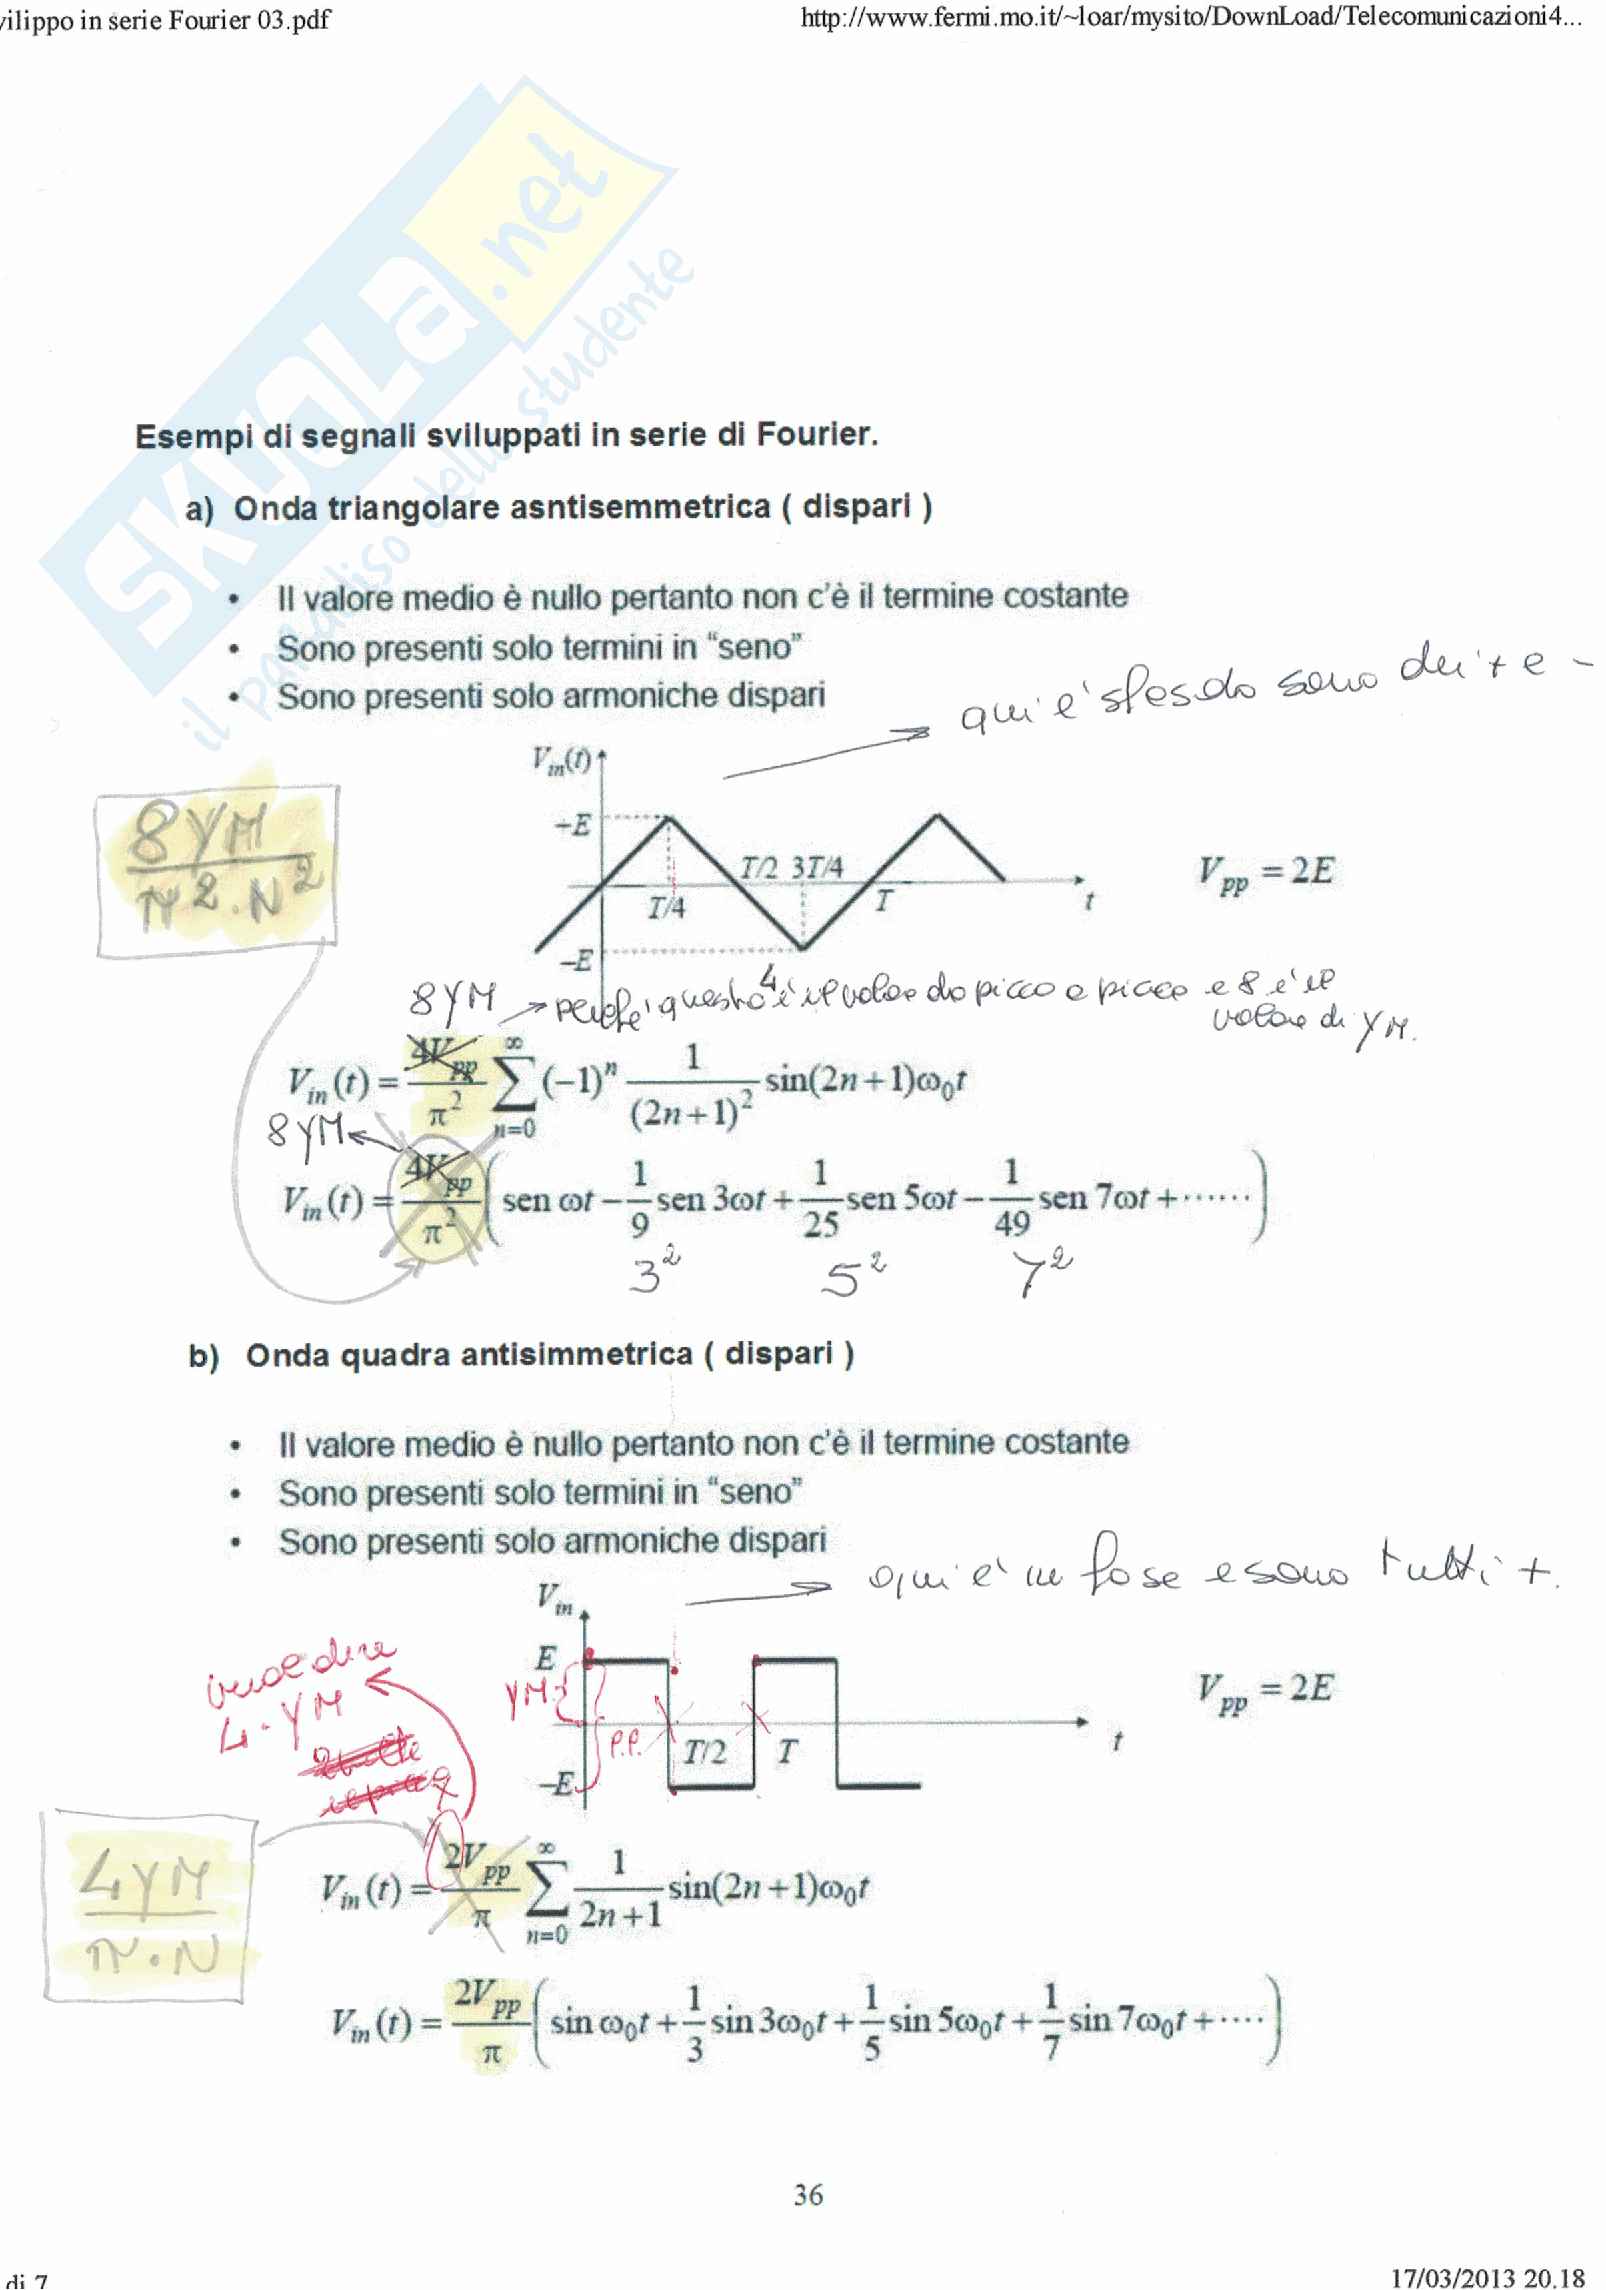 vilippo in serie Fourier 03.pdf
http://www.fermi.mo.it/~loar/mysito/DownLoad/Telecomunicazioni4...
SKUOLA.net
il paradiso dello studente
Esempi di segnali sviluppati in serie di Fourier.
a) Onda triangolare asntisemmetrica ( dispari )
• Il valore medio è nullo pertanto non c'è il termine costante
• Sono presenti solo termini in “seno”
• Sono presenti solo armoniche dispari
qui e' sfasdo sono dei + e -
8YM / π² · N²
V_in(t)
+E
T/2 3T/4
T/4
T
t
-E
V_pp = 2E
8YM → perche' questo 4 è il valore da picco e picco e 8 e' il
valore di YM.
V_in(t) = 4V_pp/π² ∑_{n=0}^{∞} (-1)^n 1/(2n+1)² sin(2n+1)ω₀t
8YM
V_in(t) = 4V_pp/π² ( sen ωt - 1/9 sen 3ωt + 1/25 sen 5ωt - 1/49 sen 7ωt + ...... )
3² 5² 7²
b) Onda quadra antisimmetrica ( dispari )
• Il valore medio è nullo pertanto non c'è il termine costante
• Sono presenti solo termini in “seno”
• Sono presenti solo armoniche dispari
qui e' in fase e sono tutti +.
V_in
E
YM
P.P.
T/2
T
t
-E
V_pp = 2E
vuol dire
4·YM
4YM / π·N
V_in(t) = 2V_pp/π ∑_{n=0}^{∞} 1/(2n+1) sin(2n+1)ω₀t
V_in(t) = 2V_pp/π ( sin ω₀t + 1/3 sin 3ω₀t + 1/5 sin 5ω₀t + 1/7 sin 7ω₀t + .... )
36
di 7
17/03/2013 20.18